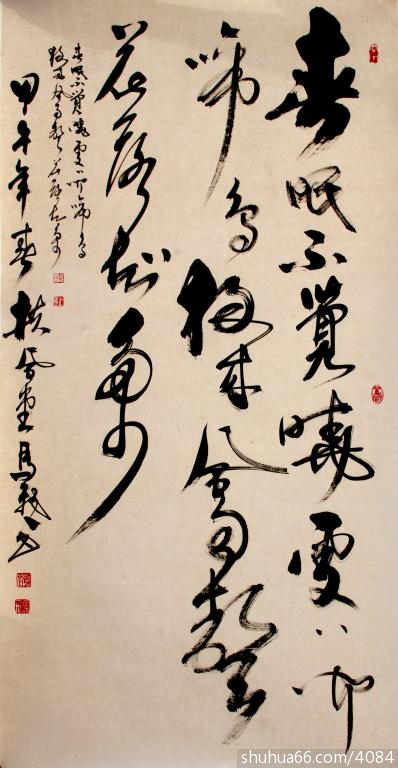 春眠不覺曉處々聞
啼鳥夜來風雨聲
花落知多少
春眠不覺曉處々聞啼鳥
夜來風雨聲花落知多少
甲午年春扶風堂馬書
shuhua66.com/4084